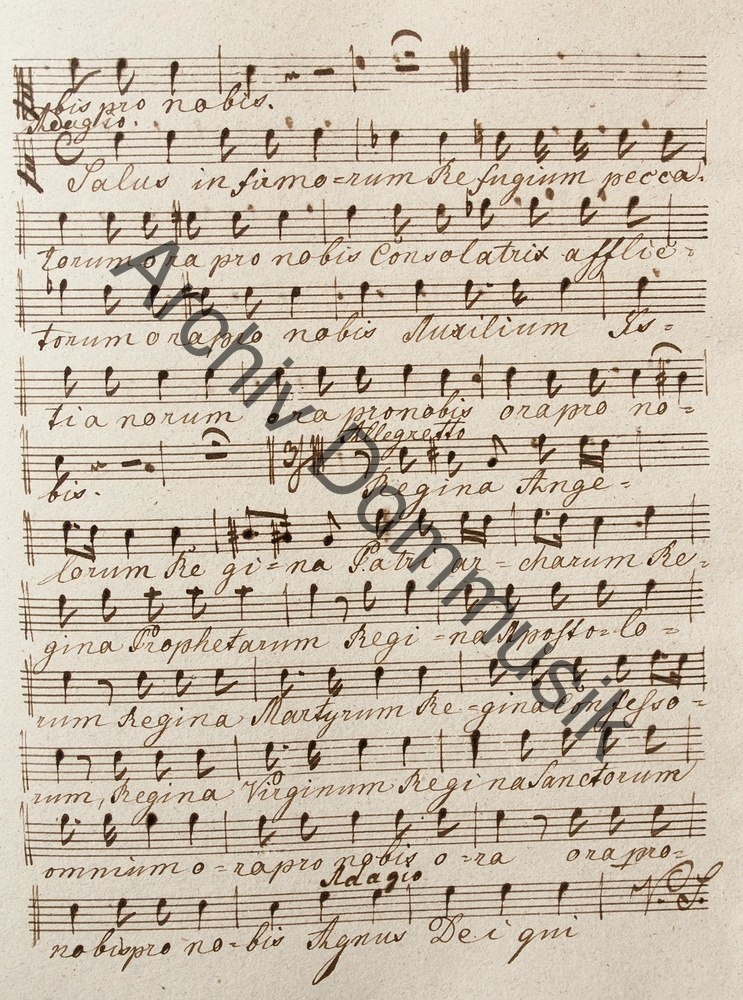 bis pro nobis.
Adagio.
Salus infirmo=rum Refugium pecca=
torum ora pro nobis Consolatrix afflic=
torum ora pro nobis Auxilium
tianorum ora pro nobis ora pro no=
Allegretto
bis. Regina Ange=
lorum Re gi=na Patri ar=charum Re=
gina Prophetarum Regi=na Aposto=lo=
rum Regina Martyrum Re=gina Confesso=
rum, Regina Virginum Regina Sanctorum
omnium o=ra pro nobis o=ra ora pro=
Adagio
nobis pro no=bis Agnus Dei qui
Archiv Dommusik